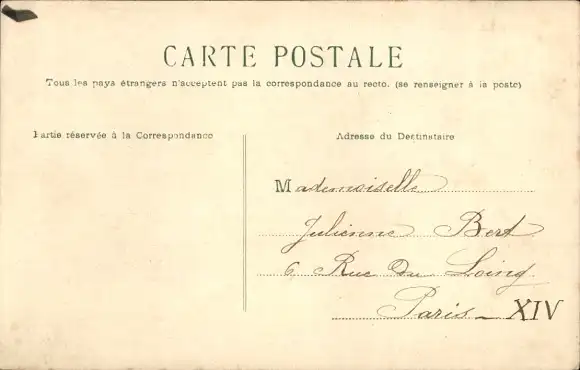 CARTE POSTALE
Tous les pays étrangers n'acceptent pas la correspondance au recto. (se renseigner à la poste)
Partie réservée à la Correspondance
Adresse du Destinataire
Mademoiselle
Julienne Bert
6 Rue Du Loing
Paris – XIV